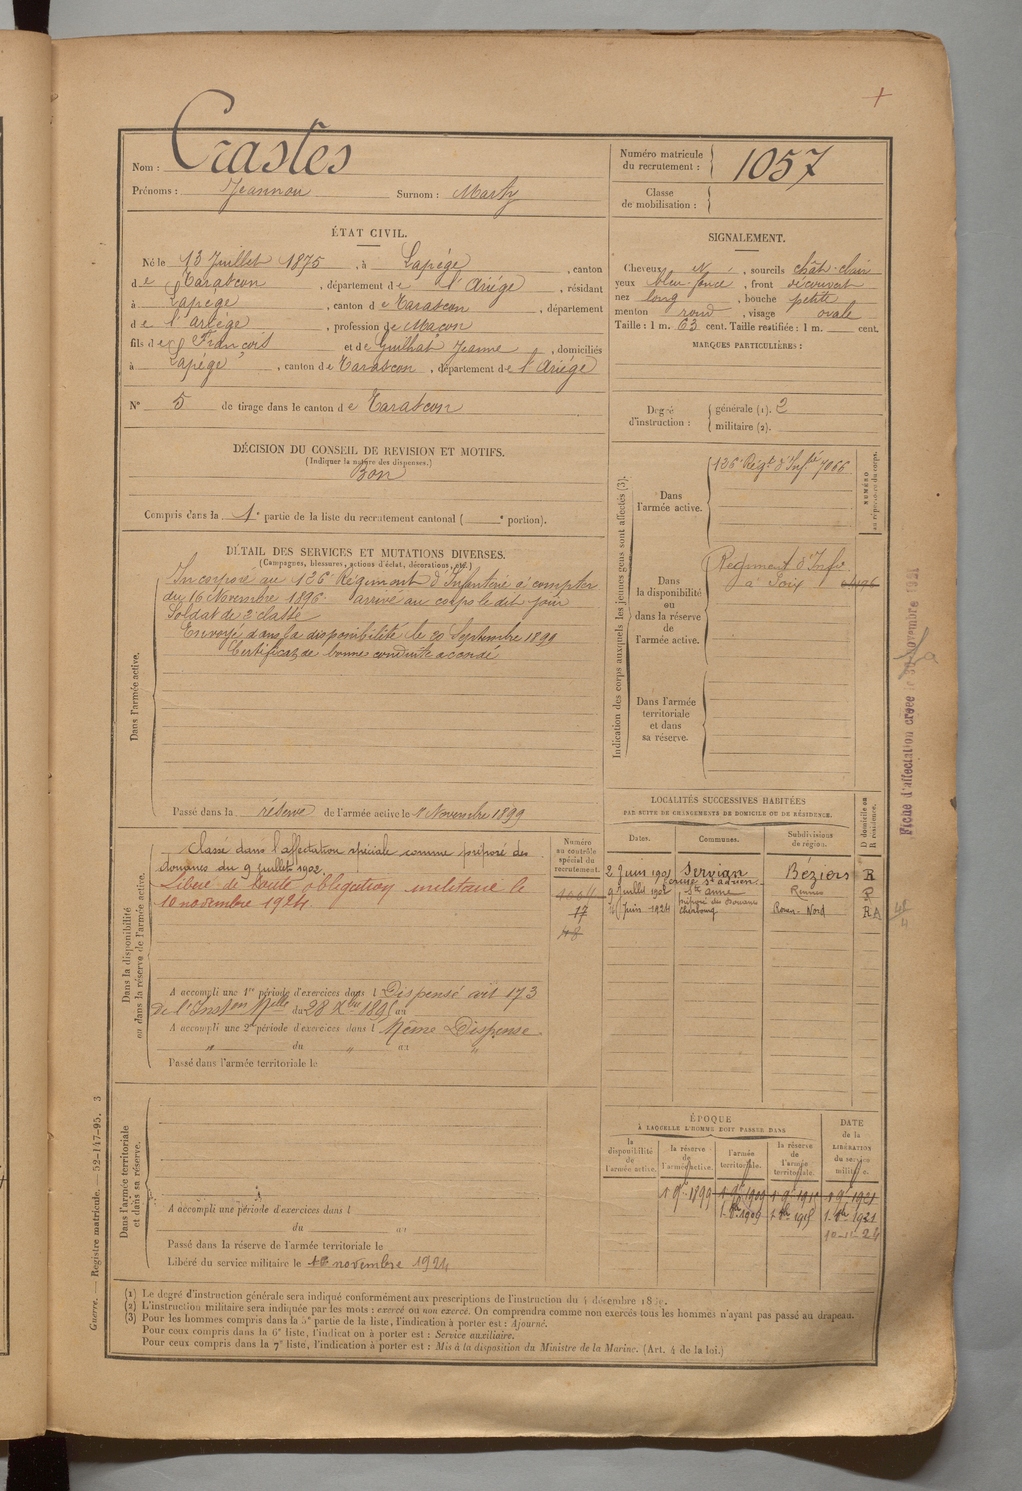 Nom : Crastes
Prénoms : Jeannou Surnom : Marty
Numéro matricule du recrutement : 1057
Classe de mobilisation :
ÉTAT CIVIL.
Né le 13 Juillet 1875, à Lapége, canton
de Tarascon, département de l'Ariége, résidant
à Lapége, canton de Tarascon, département
d e l'ariége, profession de Maçon
fils de François et de Guilhat Jeanne, domiciliés
à Lapége, canton de Tarascon, département de l'Ariége
N° 5 de tirage dans le canton de Tarascon
SIGNALEMENT.
Cheveux, sourcils chât-clair
yeux bleu-foncé, front découvert
nez long, bouche petite
menton rond, visage ovale
Taille : 1 m. 63 cent. Taille rectifiée : 1 m. cent.
MARQUES PARTICULIÈRES :
Degré d'instruction : générale (1). 2
militaire (2).
DÉCISION DU CONSEIL DE REVISION ET MOTIFS.
(Indiquer la nature des dispenses.)
Bon
Compris dans la 1e partie de la liste du recrutement cantonal ( e portion).
DÉTAIL DES SERVICES ET MUTATIONS DIVERSES.
(Campagnes, blessures, actions d'éclat, décorations, etc.)
Dans l'armée active.
Incorporé au 126e Régiment d'Infanterie à compter
du 16 Novembre 1896. arrivé au corps le dit jour
Soldat de 2e classe
Envoyé dans la disponibilité le 20 Septembre 1899
Certificat de bonne conduite accordé
Passé dans la réserve de l'armée active le 1 Novembre 1899
Indication des corps auxquels les jeunes gens sont affectés (3).
NUMÉRO au répertoire du corps.
Dans l'armée active.
126e Régt d'Infie 7066
Dans la disponibilité ou dans la réserve de l'armée active.
Régiment d'Infie
à Foix
Dans l'armée territoriale et dans sa réserve.
Fiche d'affectation créée novembre 1921
Dans la disponibilité ou dans la réserve de l'armée active.
Classé dans l'affectation spéciale comme préposé des
douanes du 9 juillet 1902
Libéré de toute obligation militaire le
10 novembre 1924.
Numéro au contrôle spécial du recrutement.
17
A accompli une 1re période d'exercices dans l Dispensé
du 28 Xbre au
A accompli une 2e période d'exercices dans l Même Dispense
" du " au "
Passé dans l'armée territoriale le
LOCALITÉS SUCCESSIVES HABITÉES
PAR SUITE DE CHANGEMENTS DE DOMICILE OU DE RÉSIDENCE.
Dates. Communes. Subdivisions de région. D domicile ou R résidence.
2 juin 1901 Servian Béziers R
9 juillet 1902 Ste anne Rennes
Juin 1924 préposé des Douanes Cherbourg Rouen-Nord RA
Dans l'armée territoriale et dans sa réserve.
A accompli une période d'exercices dans l
du au
Passé dans la réserve de l'armée territoriale le
Libéré du service militaire le 10 novembre 1924
ÉPOQUE
À LAQUELLE L'HOMME DOIT PASSER DANS
la disponibilité de l'armée active. la réserve de l'armée active. l'armée territoriale. la réserve de l'armée territoriale. DATE de la LIBÉRATION du service militaire.
1 9e 1899 1 9e 1909 1 9e 1915 1 9e 1921
1909 1915 1921
Guerre. — Registre matricule. — 52-147-95. 3
(1) Le degré d'instruction générale sera indiqué conformément aux prescriptions de l'instruction du 4 décembre
(2) L'instruction militaire sera indiquée par les mots : exercé ou non exercé. On comprendra comme non exercés tous les hommes n'ayant pas passé au drapeau.
(3) Pour les hommes compris dans la 5e partie de la liste, l'indication à porter est : Ajourné.
Pour ceux compris dans la 6e liste, l'indication à porter est : Service auxiliaire.
Pour ceux compris dans la 7e liste, l'indication à porter est : Mis à la disposition du Ministre de la Marine. (Art. 4 de la loi.)